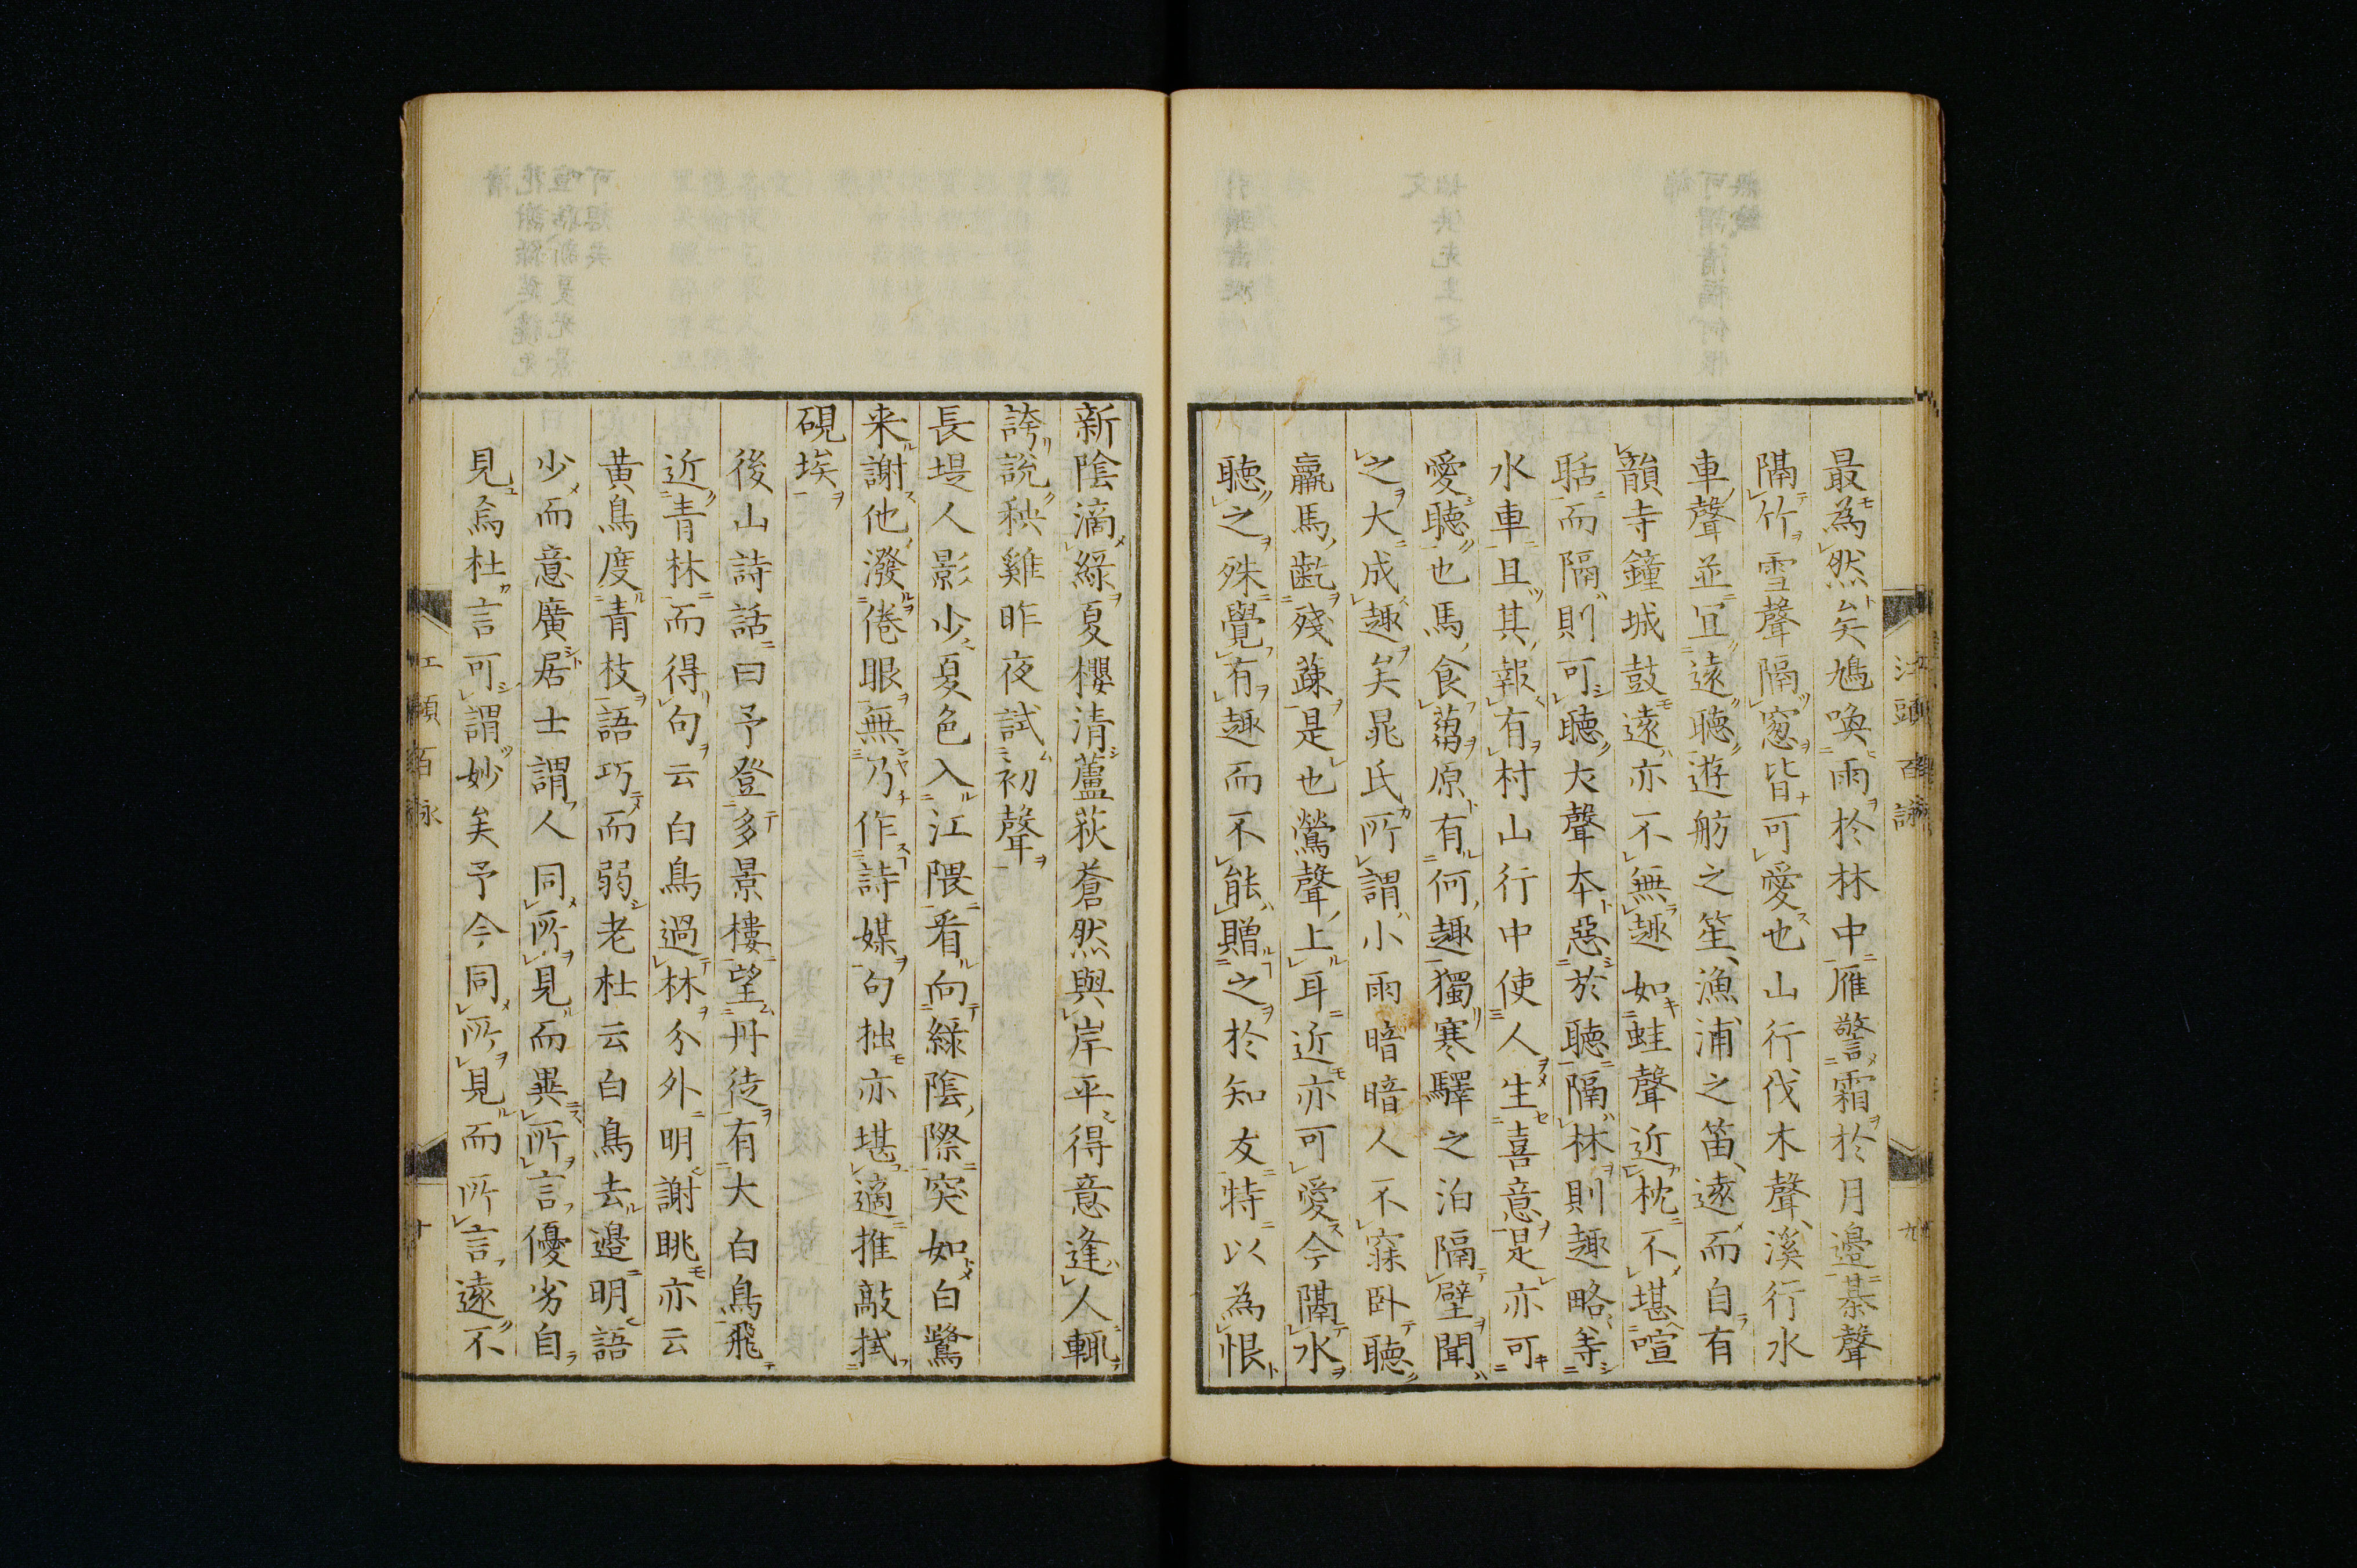 最為然矣鳩喚雨於林中雁警霜於月邊棊聲
隔竹雪聲隔窻皆可愛也山行伐木聲溪行水
車聲並冝遠聽遊舫之笙漁浦之笛遠而自有
韻寺鐘城鼓遠亦不無趣如蛙聲近枕不堪喧
聒而隔則可聽大聲本惡於聽隔林則趣略等
水車且其報有村山行中使人生喜意是亦可
愛聽也馬食蒭原有何趣獨寒驛之泊隔壁聞
之大成趣矣晁氏所謂小雨暗暗人不寐臥聽
羸馬齕殘蔬是也鶯聲上耳近亦可愛今隔水
聽之殊覺有趣而不能贈之於知友特以為恨
江頭百詠
九
新陰滴綠夏櫻清蘆荻蒼然與岸平得意逢人輒
誇說秧雞昨夜試初聲
長堤人影少夏色入江隈看向綠陰際突如白鷺
来謝他潑倦眼無乃作詩媒句拙亦堪適推敲拭
硯埃
後山詩話曰予登多景樓望丹徒有大白鳥飛
近青林而得句云白鳥過林分外明謝眺亦云
黃鳥度青枝語巧而弱老杜云白鳥去邊明語
少而意廣居士謂人同所見而異所言優劣自
見焉杜言可謂妙矣予今同所見而所言遠不
江頭百詠
十